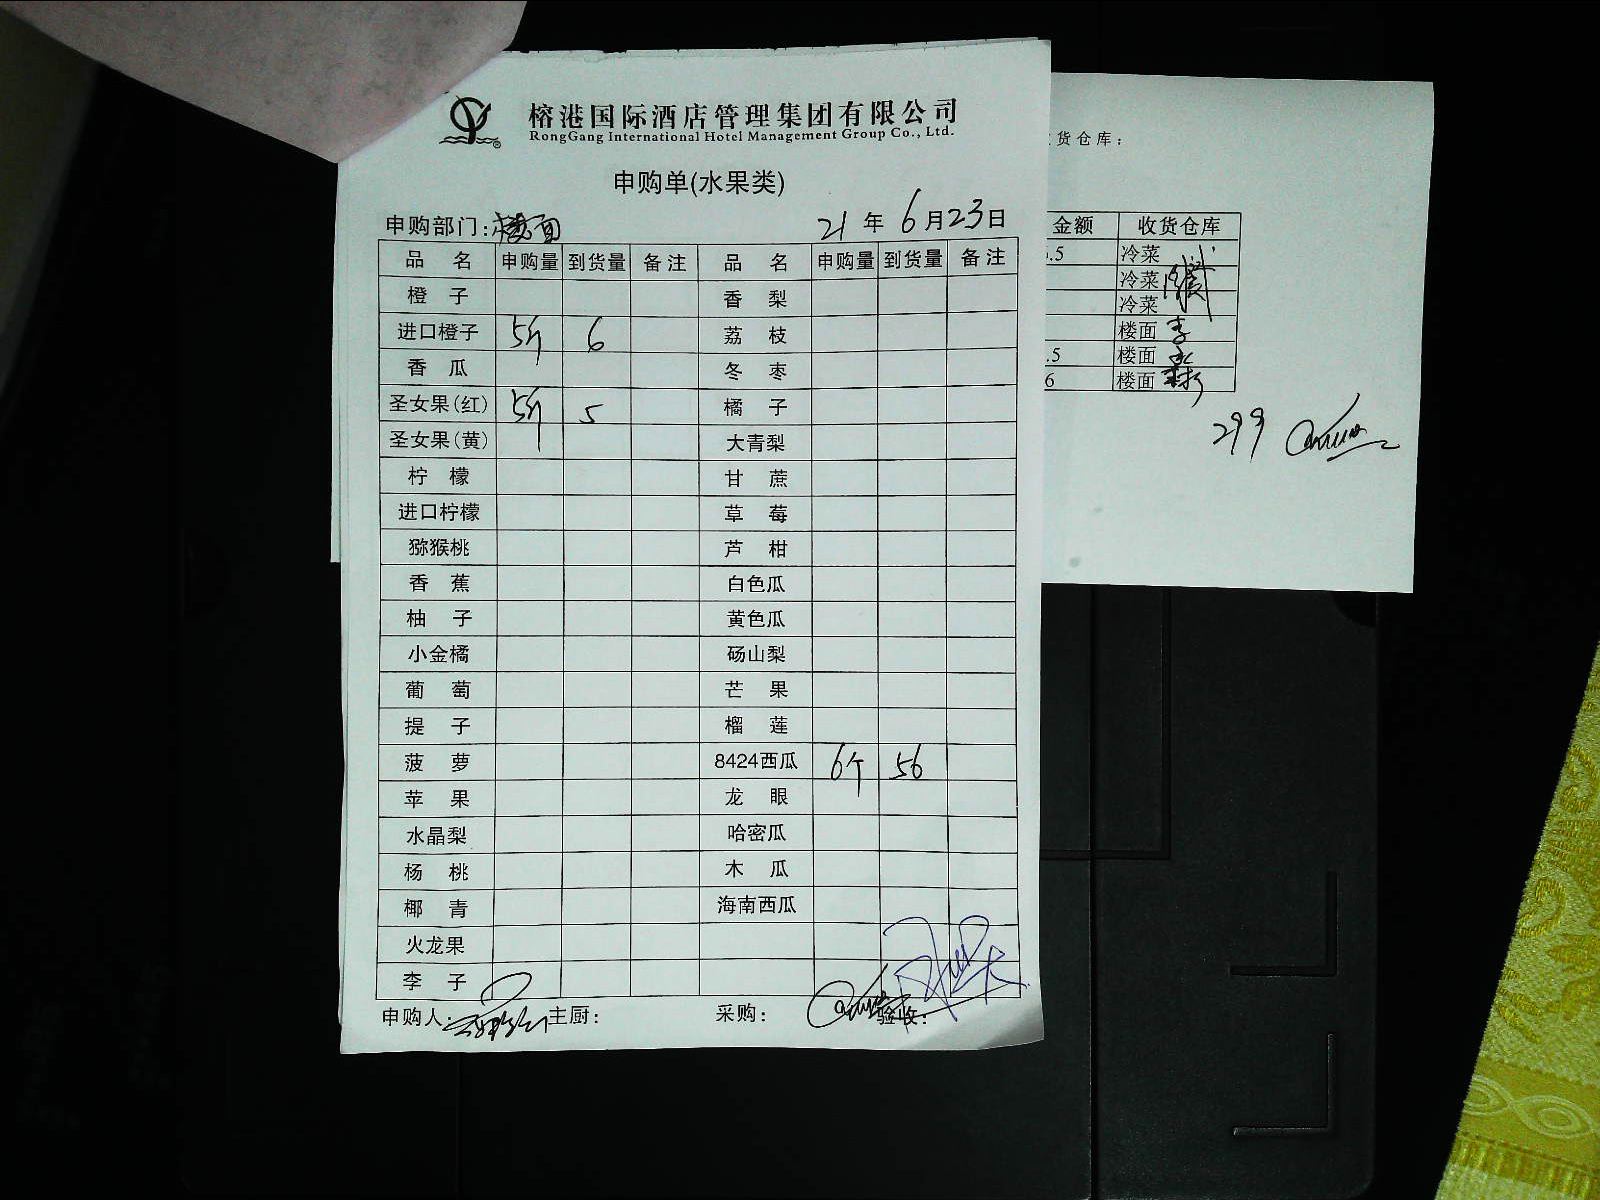 榕港国际酒店管理集团有限公司
RongGang International Hotel Management Group Co., Ltd.
申购单(水果类)
申购部门: 楼面 21 年 6 月 23 日
品名 申购量 到货量 备注 品名 申购量 到货量 备注
橙子 香梨
进口橙子 5斤 6 荔枝
香瓜 冬枣
圣女果(红) 5斤 5 橘子
圣女果(黄) 大青梨
柠檬 甘蔗
进口柠檬 草莓
猕猴桃 芦柑
香蕉 白色瓜
柚子 黄色瓜
小金橘 砀山梨
葡萄 芒果
提子 榴莲
菠萝 8424西瓜 6个 56
苹果 龙眼
水晶梨 哈密瓜
杨桃 木瓜
椰青 海南西瓜
火龙果
李子
申购人: 主厨: 采购: 验收:
货仓库:
金额 收货仓库
.5 冷菜
冷菜
冷菜
楼面
.5 楼面
6 楼面
299